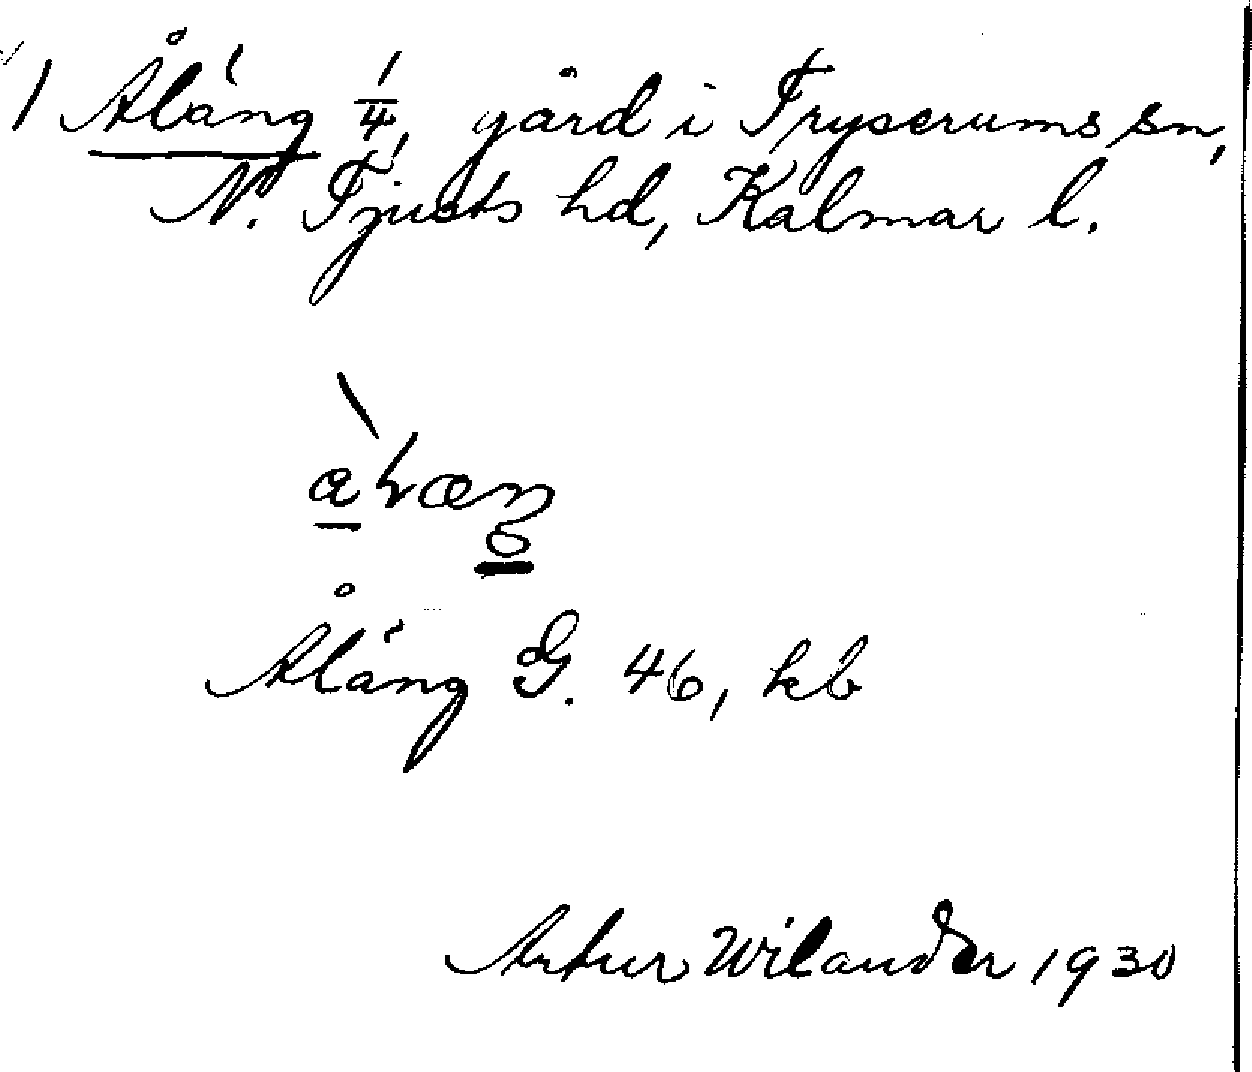 1 Åläng 1/4, gård i Tryserums sn,
N. Tjusts hd, Kalmar l.
Åläng G. 46, kb
Artur Wilander 1930